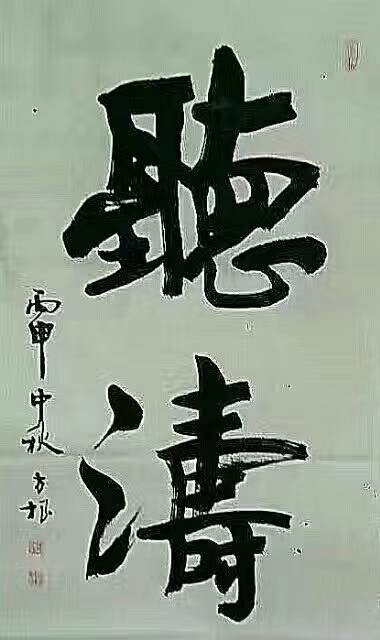 聽濤
丙申中秋 方根